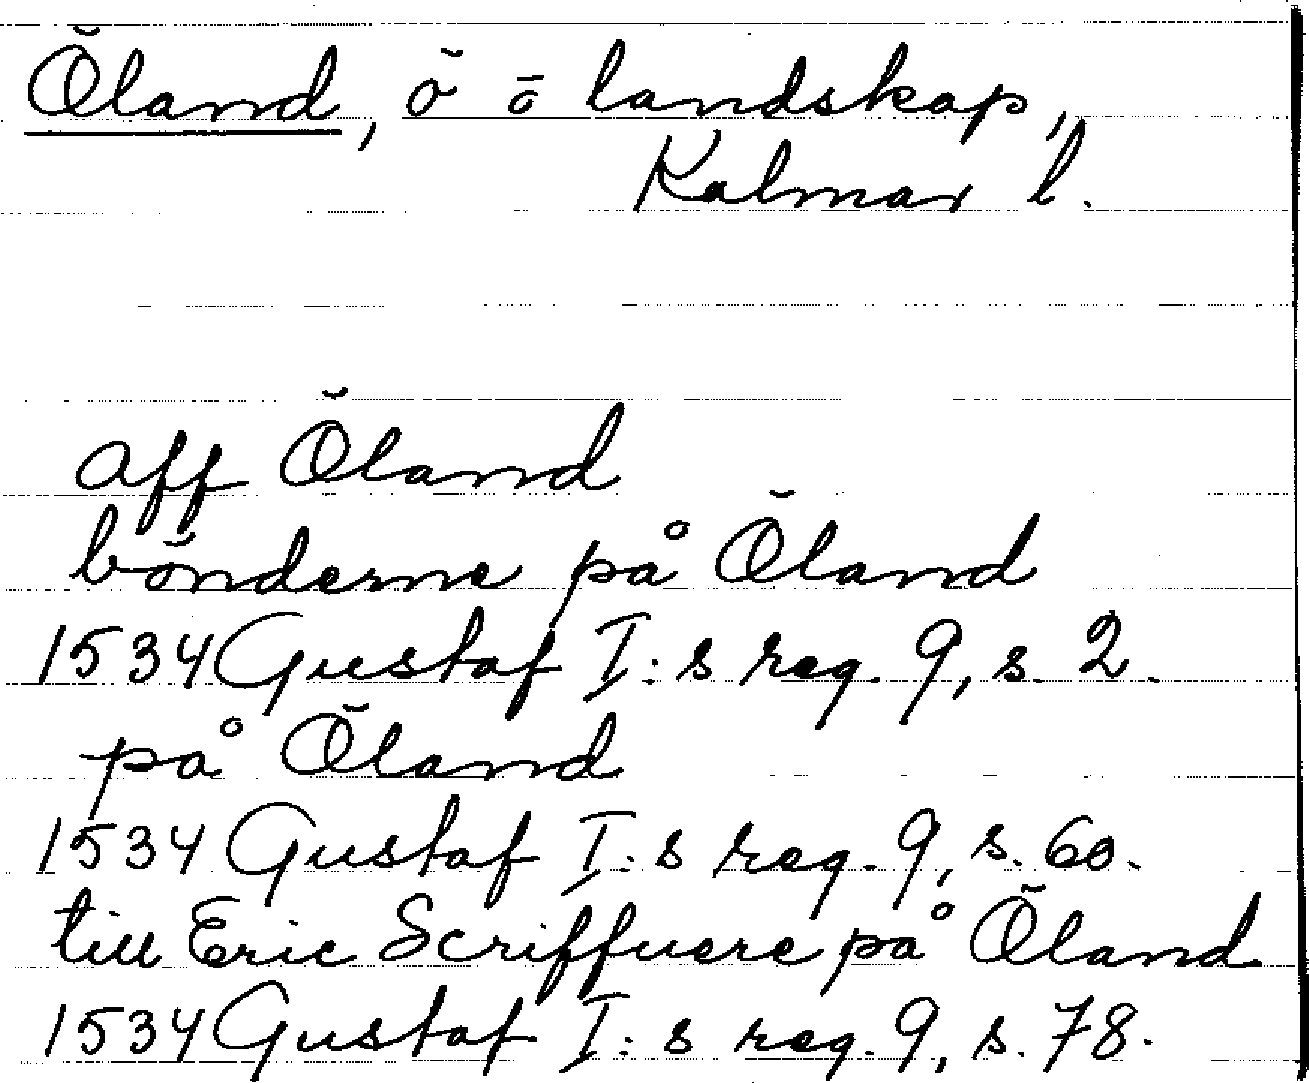 Öland, ö ō landskap,
Kalmar l.
aff Öland
bönderne på Öland
1534 Gustaf I:s reg. 9, s. 2.
på Öland
1534 Gustaf I:s reg. 9, s. 60.
till Eric Scriffuere på Öland
1534 Gustaf I:s reg. 9, s. 78.